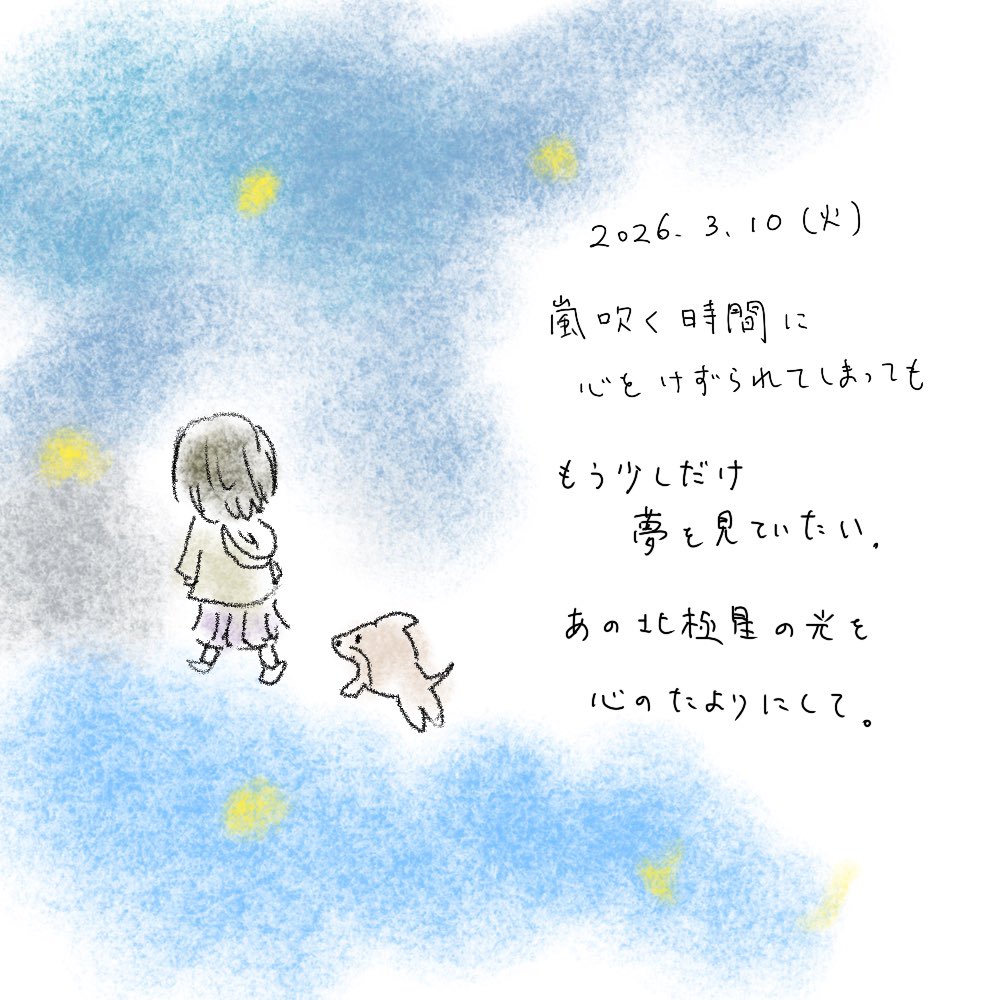 2026.3.10(火)
嵐吹く時間に
心をけずられてしまっても
もう少しだけ
夢を見ていたい.
あの北極星の光を
心のたよりにして。